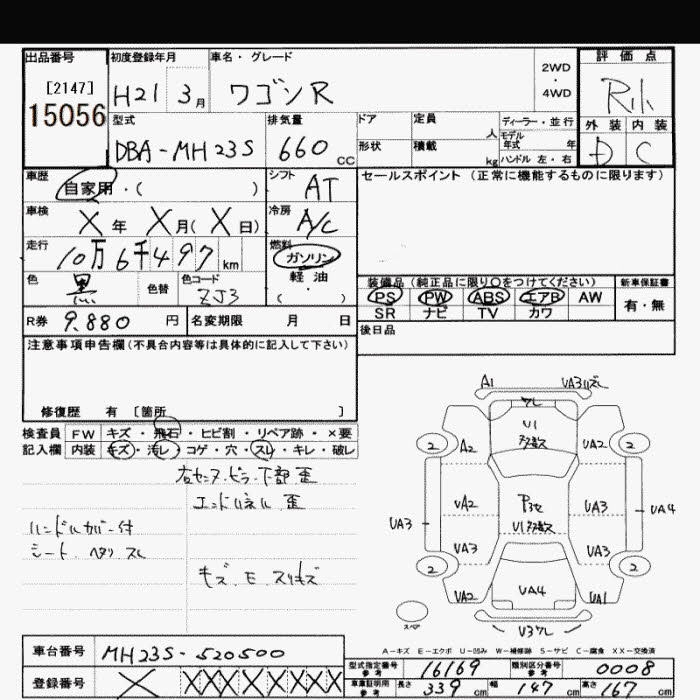 出品番号 初度登録年月 車名・グレード 評価点
[2147] 2WD
15056 H21 3月 ワゴンR ・
4WD
外装 内装
型式 排気量 ドア 定員 人 ディーラー・並行
DBA-MH23S 660 CC 形状 積載 kg モデル年式 年 D C
ハンドル 左・右
車歴 自家用・( ) シフト AT セールスポイント(正常に機能するものに限ります)
車検 X年 X月(X日) 冷房 A/C
走行 10万6千497km 燃料 ガソリン
・
軽油
( )
色 黒 色替 色コード ZJ3
装備品(純正品に限り○をつけてください) 新車保証書
PS PW ABS エアB AW 有・無
SR ナビ TV カワ
R券 9.880円 名変期限 月 日
後日品
注意事項申告欄(不具合内容等は具体的に記入して下さい)
修復歴 有 [箇所 ]
検査員 FW キズ・飛石・ヒビ割・リペア跡・×要
記入欄 内装 キズ・汚レ・コゲ・穴・スレ・キレ・破レ
右センターピラー下部 歪
エンドパネル 歪
ハンドルカバー付
シート ヘタリ スレ
キズ.E.スリキズ
A1 UA3ワレ
ワレ
U1
多数
2 A2 UA2 2
UA3 UA2 P3セ UA3 UA4
U1多数
UA3 UA3
2 2
UA2 UA4 UA1
スペア U3ワレ
A－キズ E－エクボ U－凹み W－補修跡 S－サビ C－腐食 XX－交換済
車台番号 MH23S-520500
登録番号 X XXXXXXX
型式指定番号 参考 16169 類別区分番号 参考 0008
車庫証明用 参考 長さ 339 cm 幅 147 cm 高さ 167 cm